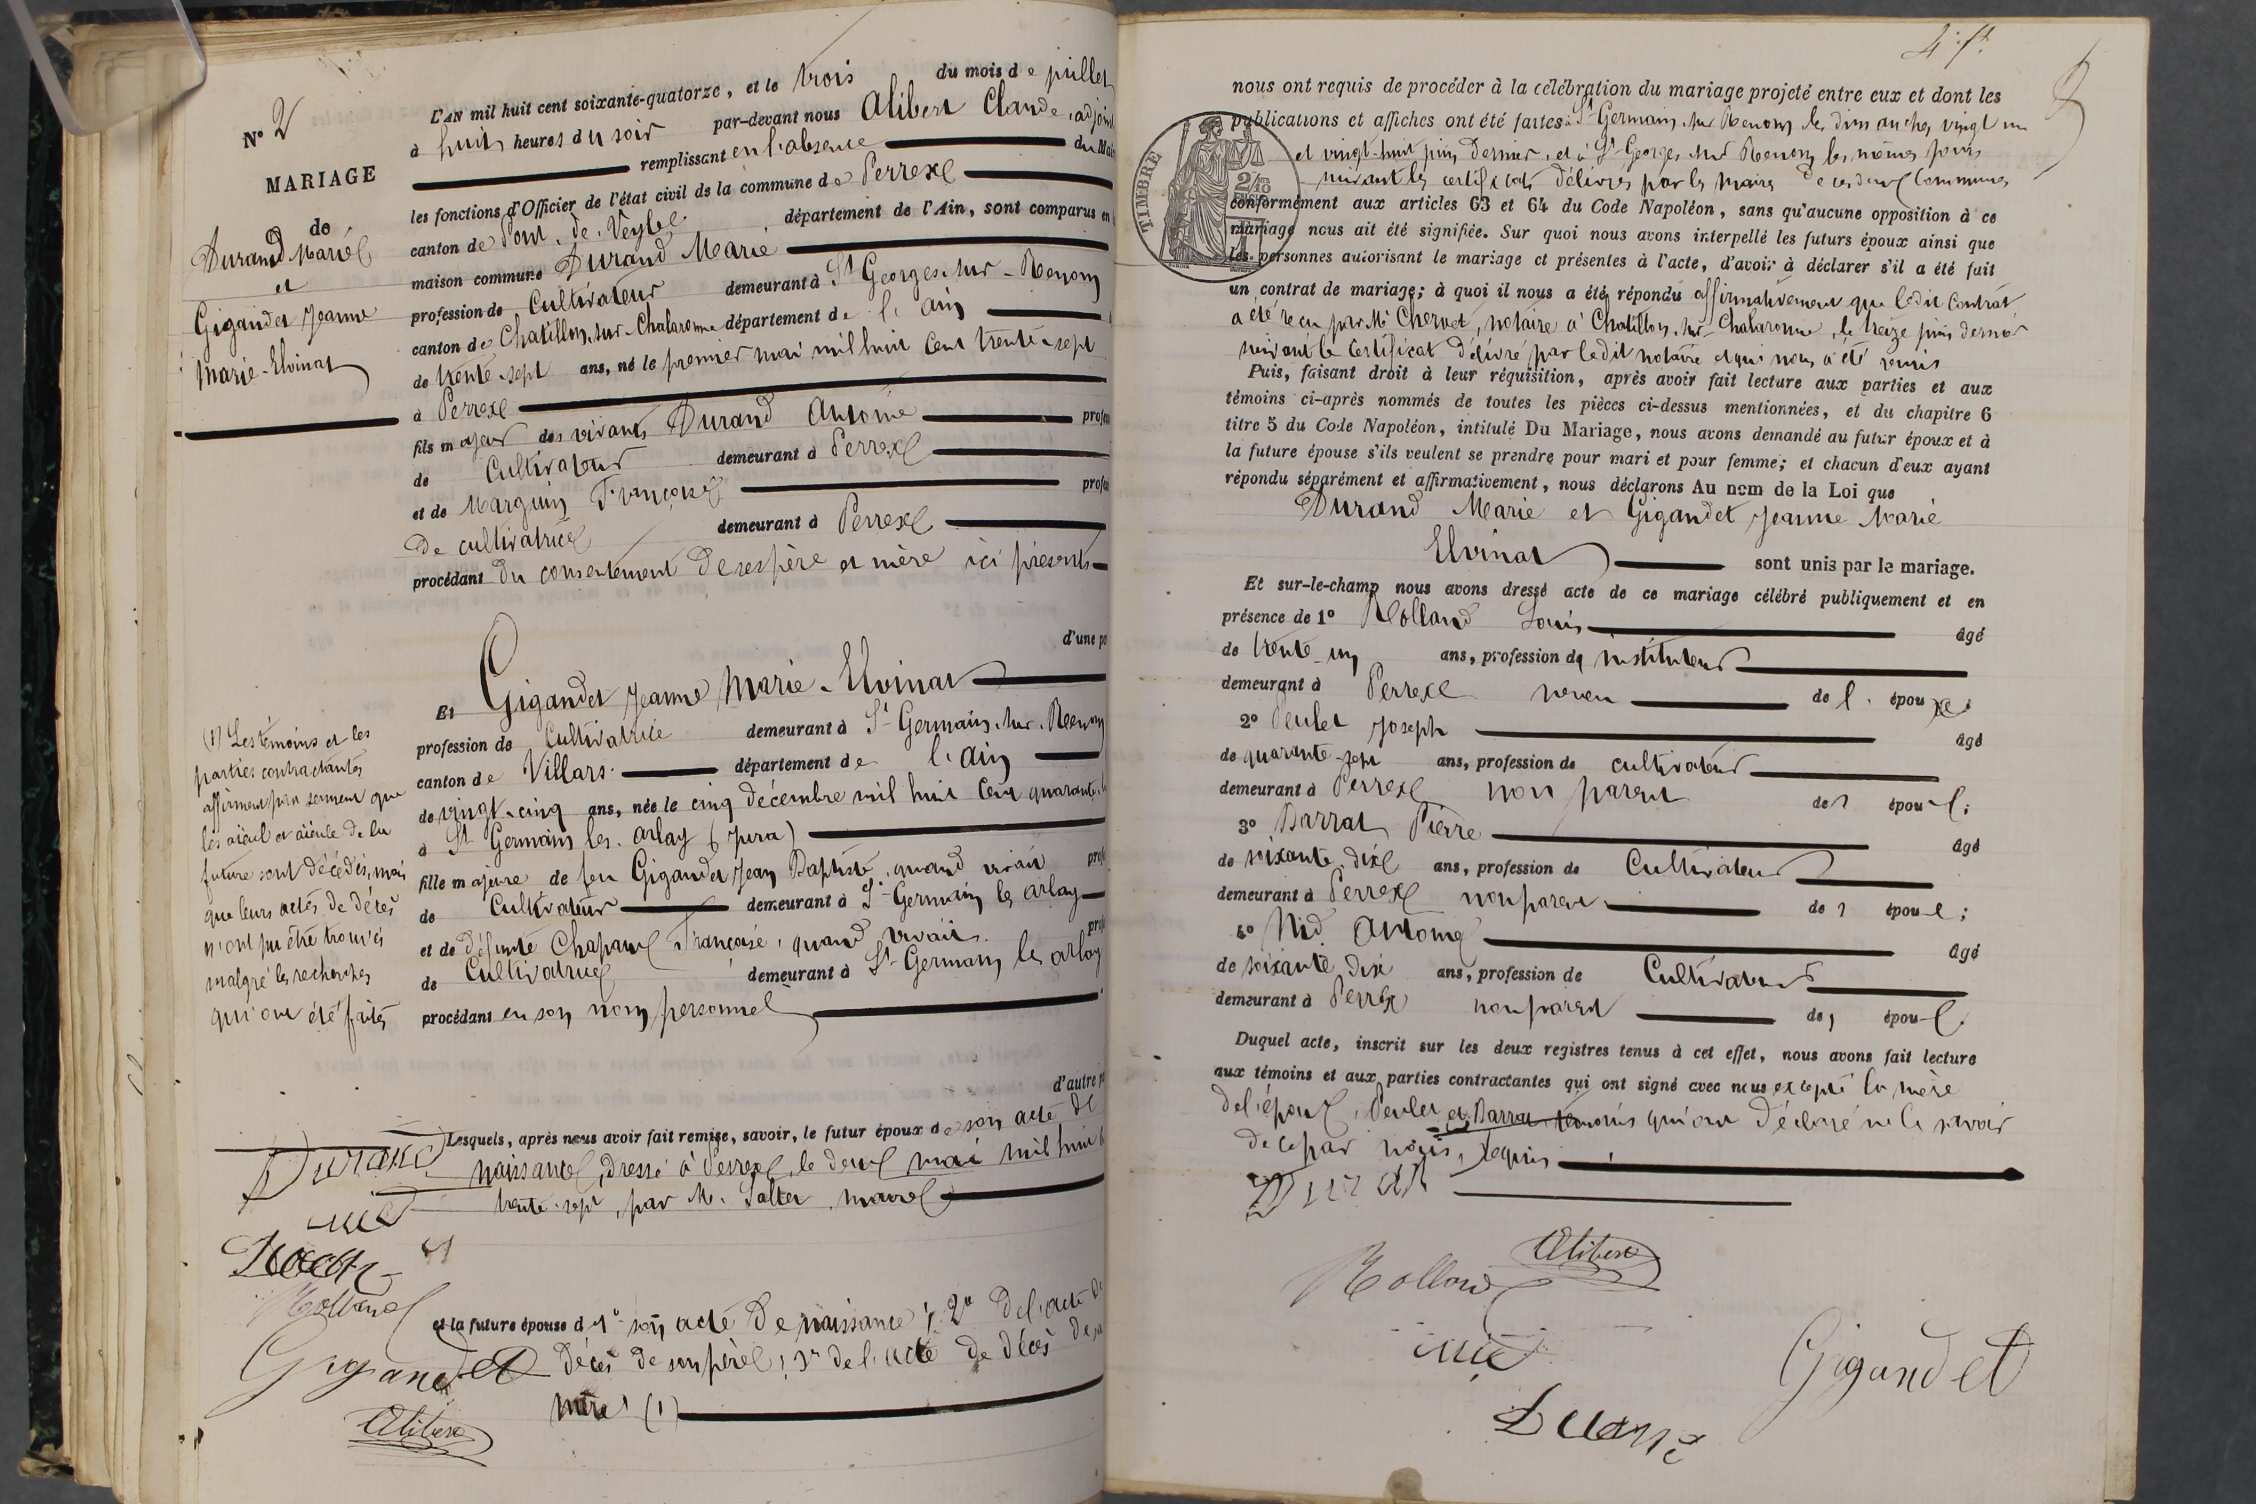 N° 2
MARIAGE
de
Durand Marie
et
Gigandet Jeanne
Marie-Elvinat
L'AN mil huit cent soixante-quatorze, et le trois du mois de juillet
à huit heures du soir par-devant nous Alibert Claude, adjoint
remplissant en l'absence du Mai
les fonctions d'Officier de l'état civil de la commune de Perrex
canton de Pont-de-Veyle département de l'Ain, sont comparus en
maison commune Durand Marie
profession de Cultivateur demeurant à St Georges-sur-Renom
canton de Chatillon-sur-Chalaronne département de l'ain
de trente-sept ans, né le premier mai mil huit cent trente-sept
à Perrex
fils majeur des vivants Durand Antoine profes
de Cultivateur demeurant à Perrex
et de Marguin Françoise profes
de cultivatrice demeurant à Perrex
procédant du consentement de ses père et mère ici présents
d'une pa
Et Gigandet Jeanne Marie-Elvinat
profession de Cultivatrice demeurant à St Germain-sur-Renom
canton de Villars département de l'ain
de vingt-cinq ans, née le cinq décembre mil huit cent quarante
à St Germain les arlay (Jura)
fille majeure de feu Gigandet Jean Baptiste, quand vivait profe
de Cultivateur demeurant à St Germain les arlay
et de défunte Chapaux Françoise, quand vivait profe
de Cultivatrice demeurant à St Germain les arlay
procédant en son nom personnel
d'autre pa
(1) Les témoins et les
parties contractantes
affirment par serment que
les aïeul et aïeule de la
future sont décédés, mais
que leurs actes de décès
n'ont pu être trouvés
malgré les recherches
qui ont été faites
Lesquels, après nous avoir fait remise, savoir, le futur époux de son acte de
naissance, dressé à Perrex, le deux mai mil huit
trente-sept, par M. Salter, maire
et la future épouse d 1° son acte de naissance; 2° de l'acte de
décès de son père; 3° de l'acte de décès de sa
mère (1)
Durand
nid
Rolland
Gigandet
Alibert
4 ft
nous ont requis de procéder à la célébration du mariage projeté entre eux et dont les
publications et affiches ont été faites à St Germain-sur-Renom les dimanches vingt un
et vingt-huit juin dernier, et à St Georges-sur-Renom les mêmes jours
suivant les certificats délivrés par les maires de ces deux communes
conformément aux articles 63 et 64 du Code Napoléon, sans qu'aucune opposition à ce
mariage nous ait été signifiée. Sur quoi nous avons interpellé les futurs époux ainsi que
les personnes autorisant le mariage et présentes à l'acte, d'avoir à déclarer s'il a été fait
un contrat de mariage; à quoi il nous a été répondu affirmativement que ledit contrat
a été reçu par Me Chervet, notaire à Chatillon-sur-Chalaronne, le treize juin dernier
suivant le certificat délivré par ledit notaire et qui nous a été remis
Puis, faisant droit à leur réquisition, après avoir fait lecture aux parties et aux
témoins ci-après nommés de toutes les pièces ci-dessus mentionnées, et du chapitre 6
titre 5 du Code Napoléon, intitulé Du Mariage, nous avons demandé au futur époux et à
la future épouse s'ils veulent se prendre pour mari et pour femme; et chacun d'eux ayant
répondu séparément et affirmativement, nous déclarons Au nom de la Loi que
Durand Marie et Gigandet Jeanne Marie
Elvinat sont unis par le mariage.
Et sur-le-champ nous avons dressé acte de ce mariage célébré publiquement et en
présence de 1° Rolland Louis âgé
de trente-un ans, profession de instituteur
demeurant à Perrex neveu de l'époux;
2° Peulet Joseph âgé
de quarante-sept ans, profession de cultivateur
demeurant à Perrex non parent des époux;
3° Barrat Pierre âgé
de soixante-dix ans, profession de Cultivateur
demeurant à Perrex non parent des époux;
4° Nid Antoine âgé
de soixante-dix ans, profession de Cultivateur
demeurant à Perrex non parent des époux.
Duquel acte, inscrit sur les deux registres tenus à cet effet, nous avons fait lecture
aux témoins et aux parties contractantes qui ont signé avec nous excepté la mère
de l'époux, Peulet et Barrat témoins qui ont déclaré ne le savoir
de ce par nous, requis
Durand
Alibert
Rolland
nid
Gigandet
Durand
TIMBRE
2/10